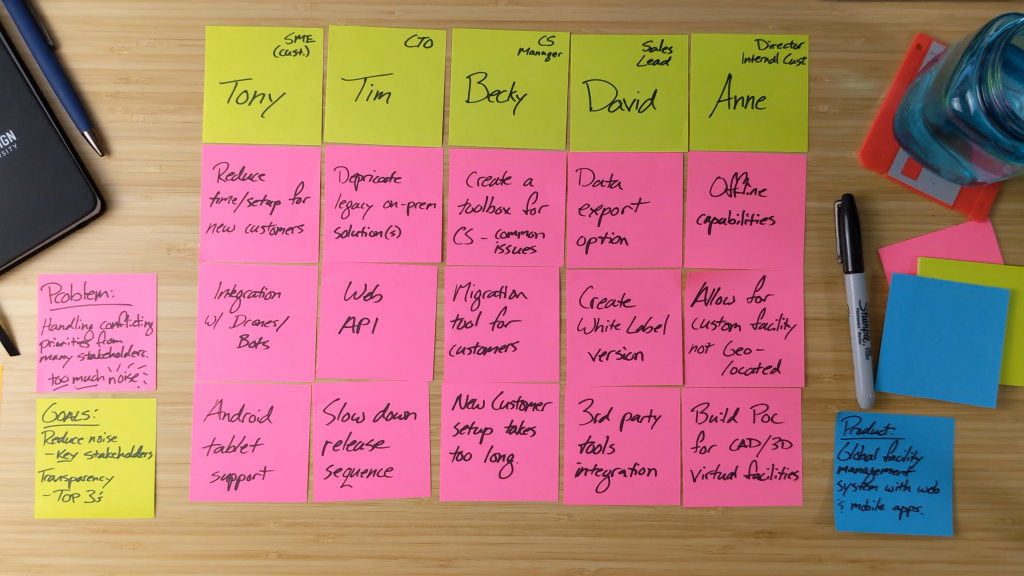 SME
(cust.)
Tony
CTO
Tim
CS
Manager
Becky
Sales
Lead
David
Director
Internal Cust
Anne
Reduce
time/setup for
new customers
Depricate
legacy on-prem
solution(s)
Create a
toolbox for
CS - common
issues
Data
export
option
Offline
capabilities
Integration
w/ Drones/
Bots
Web
API
Migration
tool for
customers
Create
White Label
version
Allow for
custom facility
not Geo-
located
Android
tablet
support
Slow down
release
sequence
New Customer
setup takes
too long.
3rd party
tools
integration
Build PoC
for CAD/3D
Virtual facilities
Problem:
Handling conflicting
priorities from
many stakeholders.
too much noise
GOALS:
Reduce noise
- Key stakeholders
Transparency
- TOP 3's
Product
Global facility
management
system with web
& mobile apps.
Sharpie